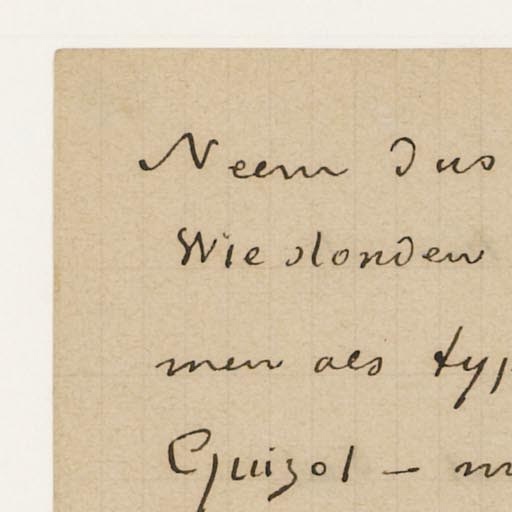 Neem dus
Wie stonden
men als typ
Guizot – m